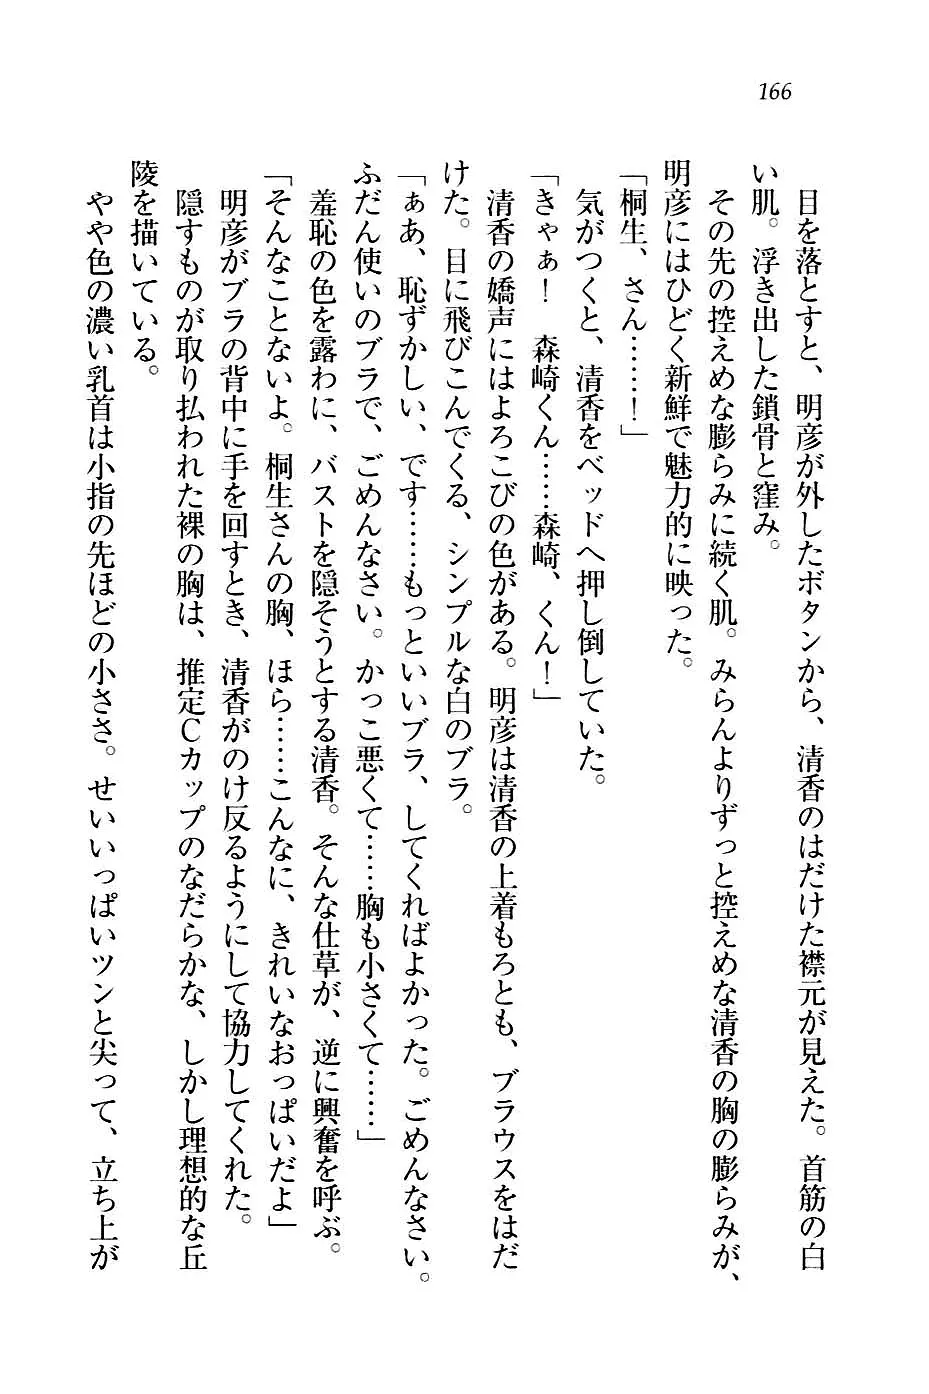 166
目を落とすと、明彦が外したボタンから、清香のはだけた襟元が見えた。首筋の白
い肌。浮き出した鎖骨と窪み。
その先の控えめな膨らみに続く肌。みらんよりずっと控えめな清香の胸の膨らみが、
明彦にはひどく新鮮で魅力的に映った。
「桐生、さん……！」
気がつくと、清香をベッドへ押し倒していた。
「きゃぁ！　森崎くん……森崎、くん！」
清香の嬌声にはよろこびの色がある。明彦は清香の上着もろとも、ブラウスをはだ
けた。目に飛びこんでくる、シンプルな白のブラ。
「ぁあ、恥ずかしい、です……もっといいブラ、してくればよかった。ごめんなさい。
ふだん使いのブラで、ごめんなさい。かっこ悪くて……胸も小さくて……」
羞恥の色を露わに、バストを隠そうとする清香。そんな仕草が、逆に興奮を呼ぶ。
「そんなことないよ。桐生さんの胸、ほら……こんなに、きれいなおっぱいだよ」
明彦がブラの背中に手を回すとき、清香がのけ反るようにして協力してくれた。
隠すものが取り払われた裸の胸は、推定Cカップのなだらかな、しかし理想的な丘
陵を描いている。
やや色の濃い乳首は小指の先ほどの小ささ。せいいっぱいツンと尖って、立ち上が